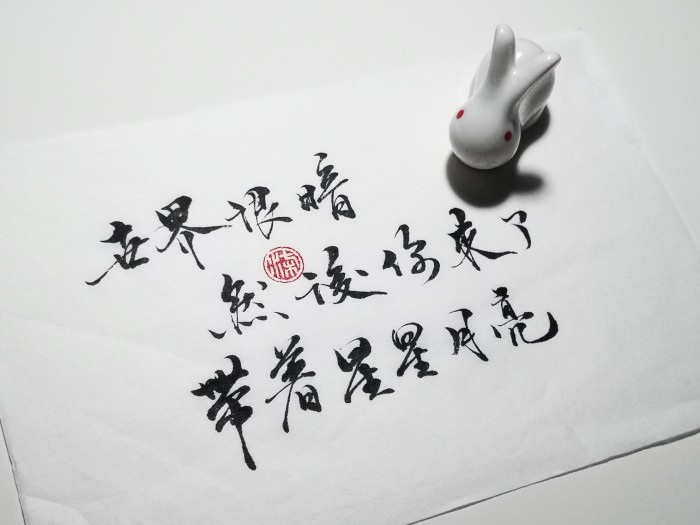 世界很暗
然後你来了
带着星星月亮